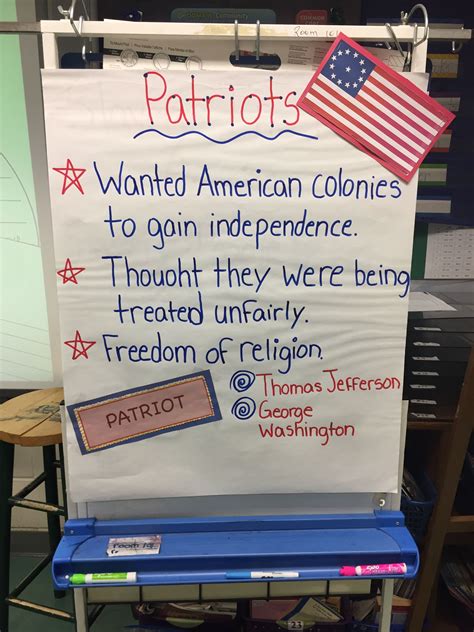 Room 101
Patriots
Wanted American colonies
to gain independence.
Thouoht they were being
treated unfairly.
Freedom of religion.
Thomas Jefferson
George
Washington
PATRIOT
EXPO
23